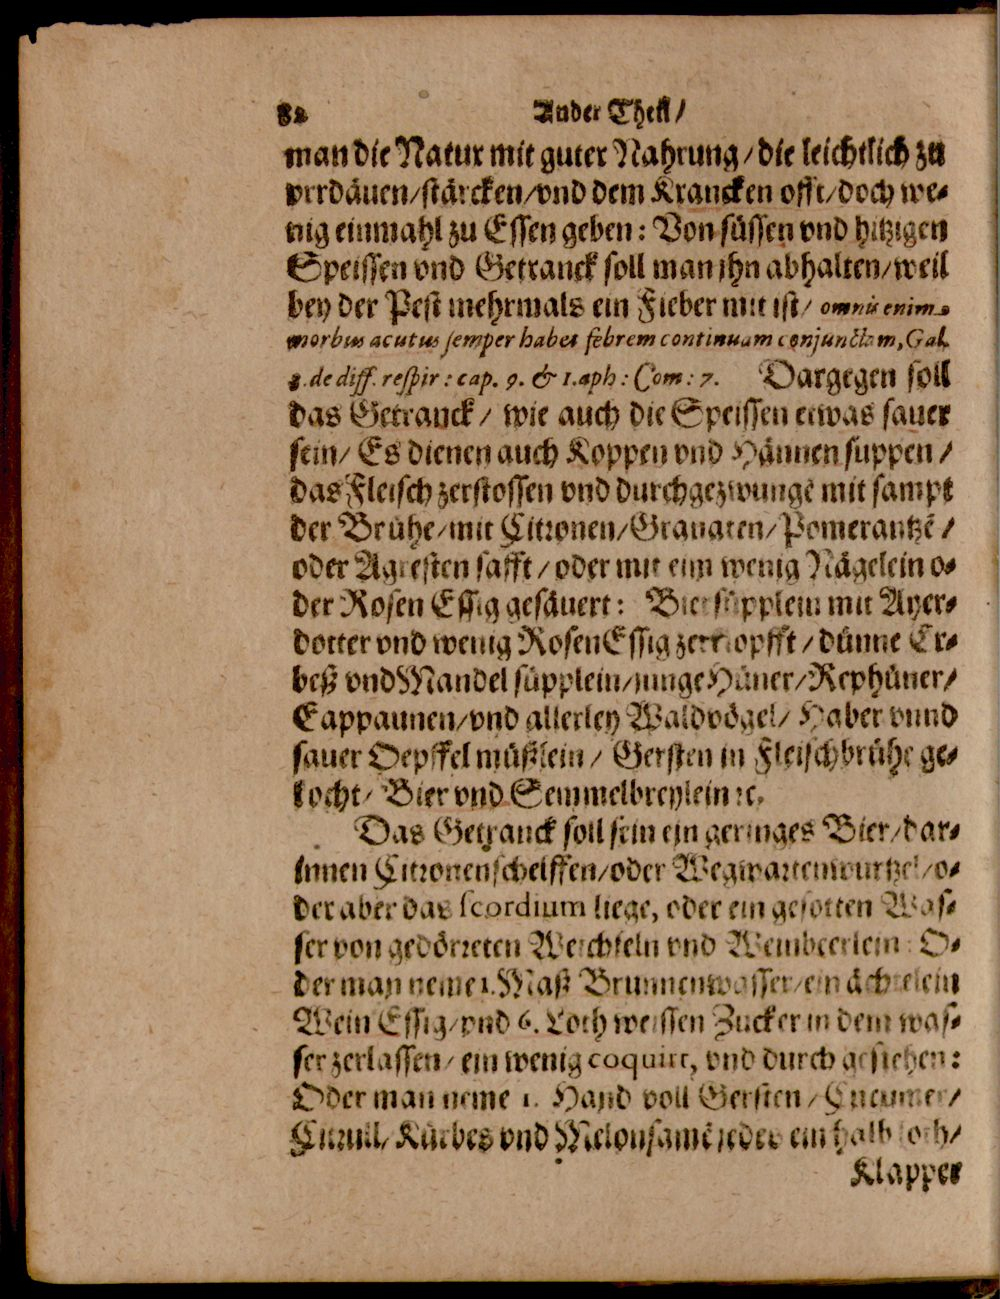 82 Ander Theil /
man die Natur mit guter Nahrung / die leichtlich zu
verdäuen / stärcken / vnd dem Krancken offt / doch we-
nig einmahl zu Essen geben : Von süssen vnd hitzigen
Speissen vnd Getranck soll man jhn abhalten / weil
bey der Pest mehrmals ein Fieber mit ist / omnis enim
morbus acutus semper habet febrem continuam conjunctam, Gal.
3. de diff. respir : cap. 9. & 1. aph : Com : 7. Dargegen soll
das Getranck / wie auch die Speissen etwas sauer
sein / Es dienen auch Koppen vnd Hännen suppen /
das Fleisch zerstossen vnd durchgezwungẽ mit sampt
der Brühe / mit Citronen / Granaten / Pomerantzẽ /
oder Agresten safft / oder mit ein wenig Nägelein o-
der Rosen Essig gesäuert : Biersüpplein mit Ayer-
dotter vnd wenig Rosen Essig zerklopfft / dünne Er-
beß vnd Mandel süpplein / junge Hüner / Rephüner /
Cappaunen / vnd allerley Waldvögel / Haber vnnd
sauer Oepffel müßlein / Gersten in Fleischbrühe ge-
kocht / Bier vnd Semmelbreylein ꝛc.
Das Getranck soll sein ein geringes Bier / dar-
innen Citronenscheiffen / oder Wegwartenwurtzel / o-
der aber das scordium liege, oder ein gesotten Was-
ser von gedörreten Weichseln vnd Weinbeerlein : O-
der man neme 1. Maß Brunnenwasser / ein ächtelein
Wein Essig / vnd 6. Loth weissen Zucker in dem was-
ser zerlassen / ein wenig coquirt, vnd durch gesiehen :
Oder man neme 1. Hand voll Gersten / Cucumer /
Citrull / Kürbes vnd Melonsamẽ jedes ein halb loth /
Klapper